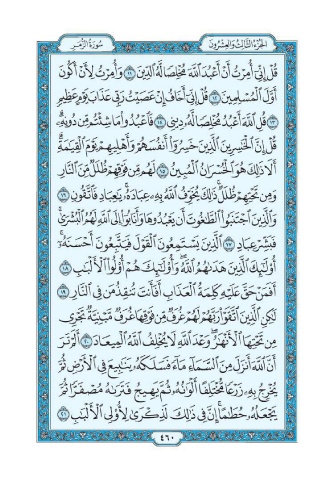 الجزء الثالث والعشرون
سورة الزمر
قُلْ إِنِّي أُمِرْتُ أَنْ أَعْبُدَ اللَّهَ مُخْلِصًا لَهُ الدِّينَ ۝١١ وَأُمِرْتُ لِأَنْ أَكُونَ
أَوَّلَ الْمُسْلِمِينَ ۝١٢ قُلْ إِنِّي أَخَافُ إِنْ عَصَيْتُ رَبِّي عَذَابَ يَوْمٍ عَظِيمٍ
۝١٣ قُلِ اللَّهَ أَعْبُدُ مُخْلِصًا لَهُ دِينِي ۝١٤ فَاعْبُدُوا مَا شِئْتُمْ مِنْ دُونِهِ
قُلْ إِنَّ الْخَاسِرِينَ الَّذِينَ خَسِرُوا أَنْفُسَهُمْ وَأَهْلِيهِمْ يَوْمَ الْقِيَامَةِ
أَلَا ذَلِكَ هُوَ الْخُسْرَانُ الْمُبِينُ ۝١٥ لَهُمْ مِنْ فَوْقِهِمْ ظُلَلٌ مِنَ النَّارِ
وَمِنْ تَحْتِهِمْ ظُلَلٌ ذَلِكَ يُخَوِّفُ اللَّهُ بِهِ عِبَادَهُ يَاعِبَادِ فَاتَّقُونِ ۝١٦
وَالَّذِينَ اجْتَنَبُوا الطَّاغُوتَ أَنْ يَعْبُدُوهَا وَأَنَابُوا إِلَى اللَّهِ لَهُمُ الْبُشْرَى
فَبَشِّرْ عِبَادِ ۝١٧ الَّذِينَ يَسْتَمِعُونَ الْقَوْلَ فَيَتَّبِعُونَ أَحْسَنَهُ
أُولَئِكَ الَّذِينَ هَدَاهُمُ اللَّهُ وَأُولَئِكَ هُمْ أُولُو الْأَلْبَابِ ۝١٨
أَفَمَنْ حَقَّ عَلَيْهِ كَلِمَةُ الْعَذَابِ أَفَأَنْتَ تُنْقِذُ مَنْ فِي النَّارِ ۝١٩
لَكِنِ الَّذِينَ اتَّقَوْا رَبَّهُمْ لَهُمْ غُرَفٌ مِنْ فَوْقِهَا غُرَفٌ مَبْنِيَّةٌ تَجْرِي
مِنْ تَحْتِهَا الْأَنْهَارُ وَعْدَ اللَّهِ لَا يُخْلِفُ اللَّهُ الْمِيعَادَ ۝٢٠ أَلَمْ تَرَ
أَنَّ اللَّهَ أَنْزَلَ مِنَ السَّمَاءِ مَاءً فَسَلَكَهُ يَنَابِيعَ فِي الْأَرْضِ ثُمَّ
يُخْرِجُ بِهِ زَرْعًا مُخْتَلِفًا أَلْوَانُهُ ثُمَّ يَهِيجُ فَتَرَاهُ مُصْفَرًّا ثُمَّ
يَجْعَلُهُ حُطَامًا إِنَّ فِي ذَلِكَ لَذِكْرَى لِأُولِي الْأَلْبَابِ ۝٢١
٤٦٠